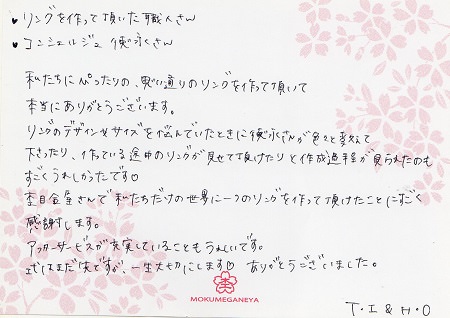 ♥リングを作って頂いた職人さん
♥コンシェルジュ 徳永さん
私たちにぴったりの、思い通りのリングを作って頂いて
本当にありがとうございます。
リングのデザインやサイズを悩んでいたときに徳永さんが色々と教えて
下さったり、作っている途中のリングが見せて頂けたりと作成過程が見られたのも
すごくうれしかったです♡
杢目金屋さんで私たちだけの世界に一つのリングを作って頂けたことにすごく
感謝します。
アフターサービスが充実していることもうれしいです。
式はまだ先ですが、一生大切にします♡ ありがとうございました。
MOKUMEGANEYA
T・I & H・O